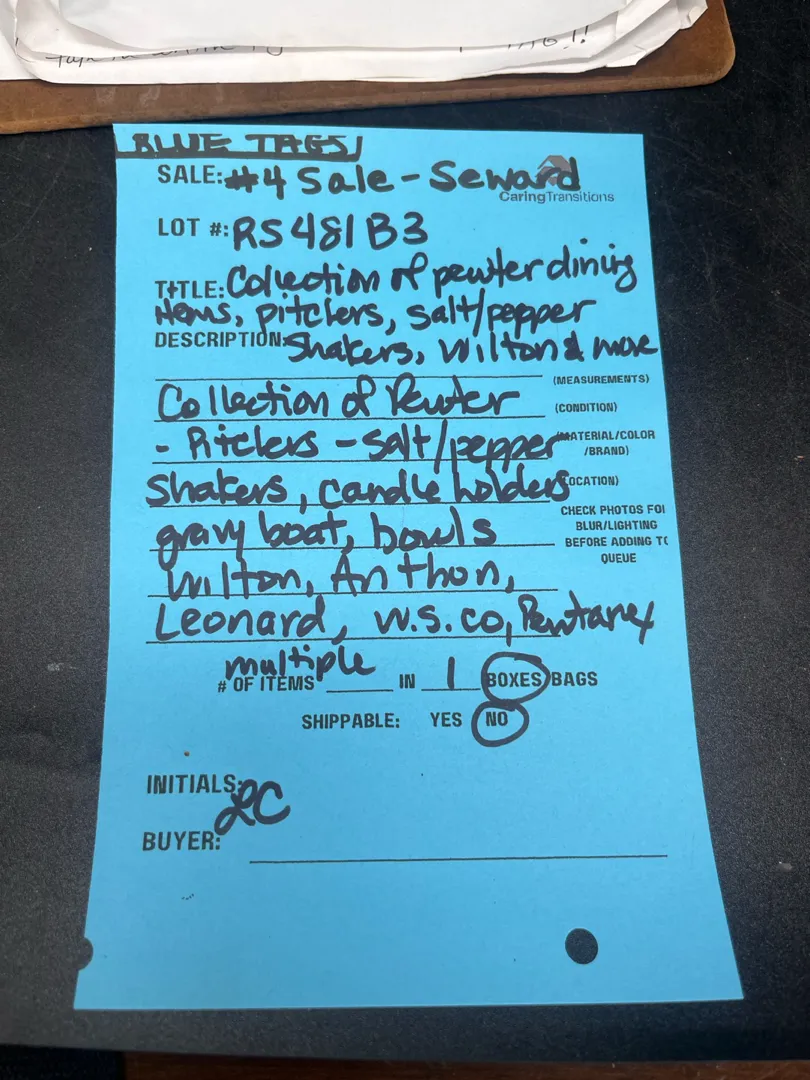 BLUE TAGS
SALE: #4 Sale - Seward
CaringTransitions
LOT #: RS481B3
TITLE: Collection of pewter dining
items, pitchers, salt/pepper
DESCRIPTION: Shakers, Wilton & more
(MEASUREMENTS)
Collection of Pewter
(CONDITION)
- Pitchers - salt/pepper
(MATERIAL/COLOR
/BRAND)
shakers, candle holders
LOCATION)
gravy boat, bowls
CHECK PHOTOS FOR
BLUR/LIGHTING
BEFORE ADDING TO
QUEUE
Wilton, Anthon,
Leonard, W.S. co, Pewtarex
# OF ITEMS multiple IN 1 BOXES BAGS
SHIPPABLE: YES NO
INITIALS: LC
BUYER: